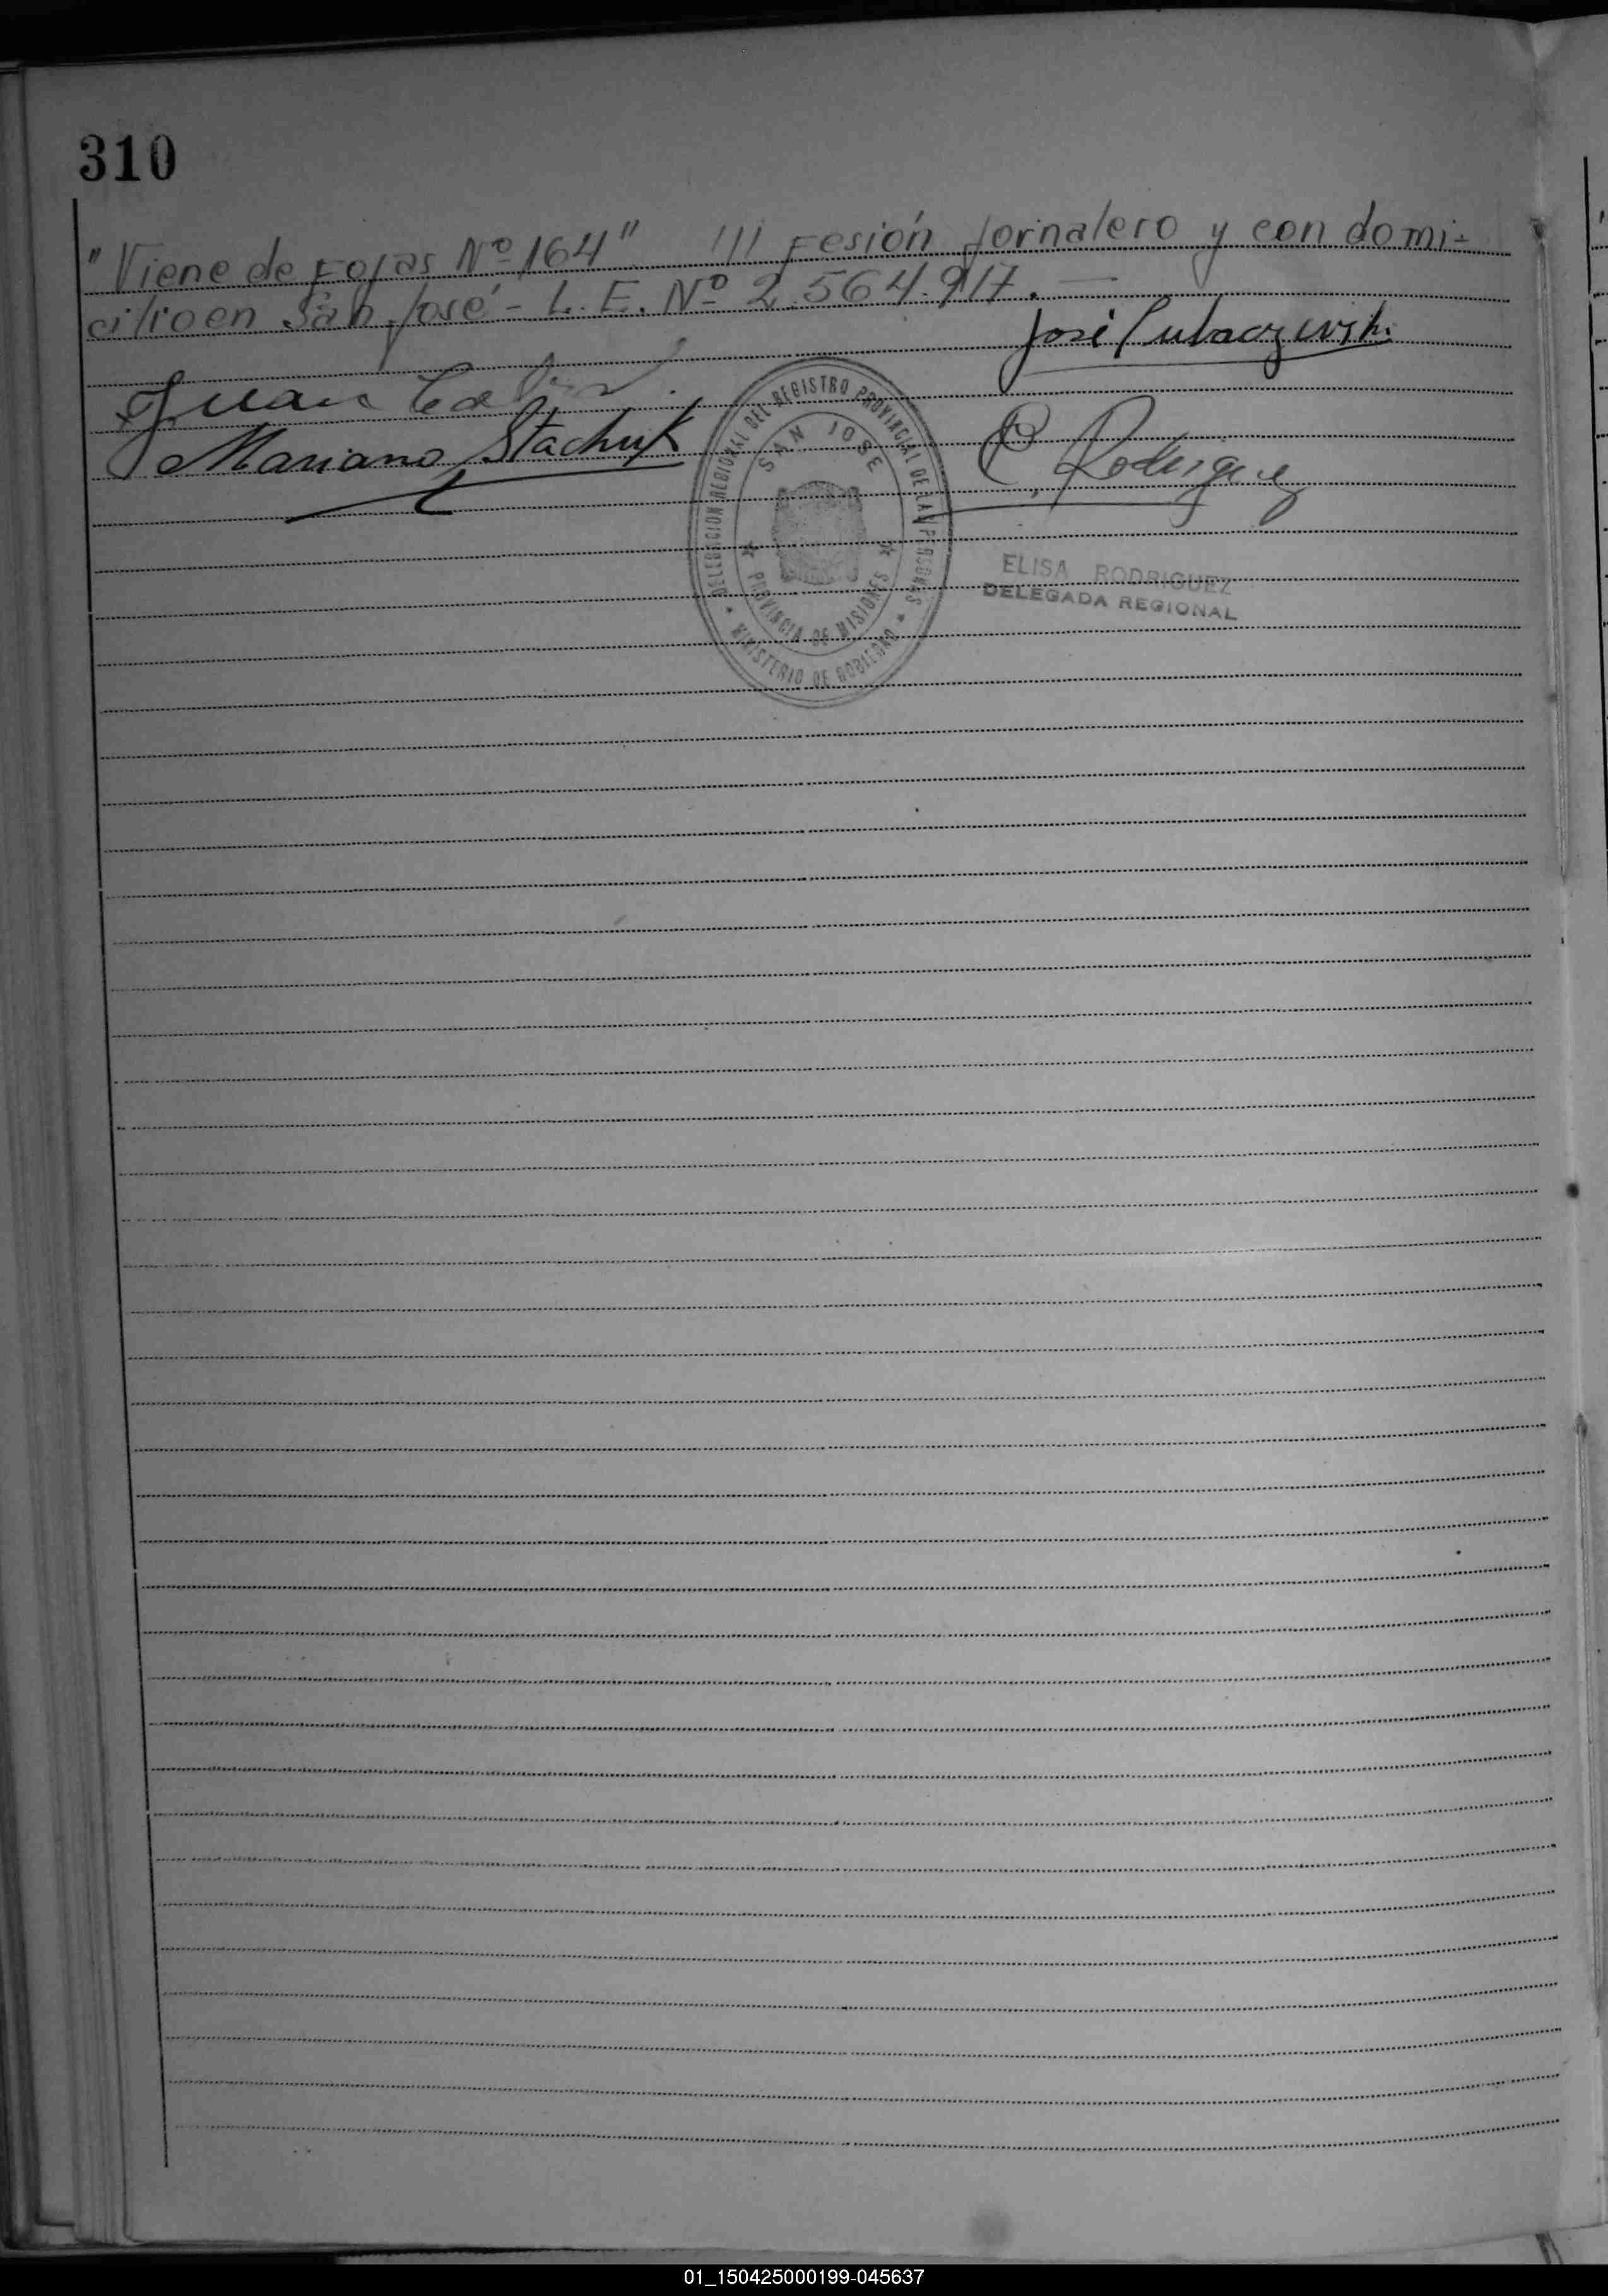 310
"Viene de Fojas Nº 164" /// Fesión Jornalero y con domi-
cilio en San José - L. E. Nº 2.564.917. —
José Lubaczewski
Juan
Mariano Stachuk
E. Rodriguez
DELEGACION REGIONAL DEL REGISTRO PROVINCIAL DE LAS PERSONAS
SAN JOSE
PROVINCIA DE MISIONES
MINISTERIO DE GOBIERNO
ELISA RODRIGUEZ
DELEGADA REGIONAL
01_150425000199-045637